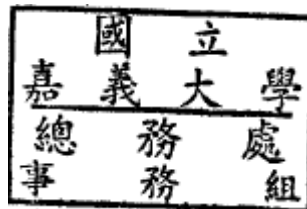 國立
嘉義大學
總務處
事務組